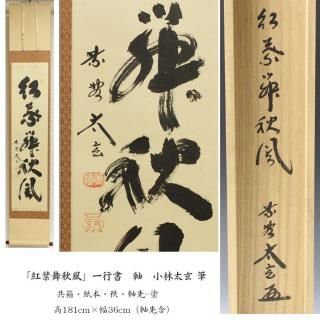 紅葉舞秋風
紫野太玄
舞秋
紫野太玄
紅葉舞秋風
紫野太玄
「紅葉舞秋風」一行書 軸 小林太玄 筆
共箱・紙本・秩・軸先-塗
高181cm×幅36cm（軸先含）